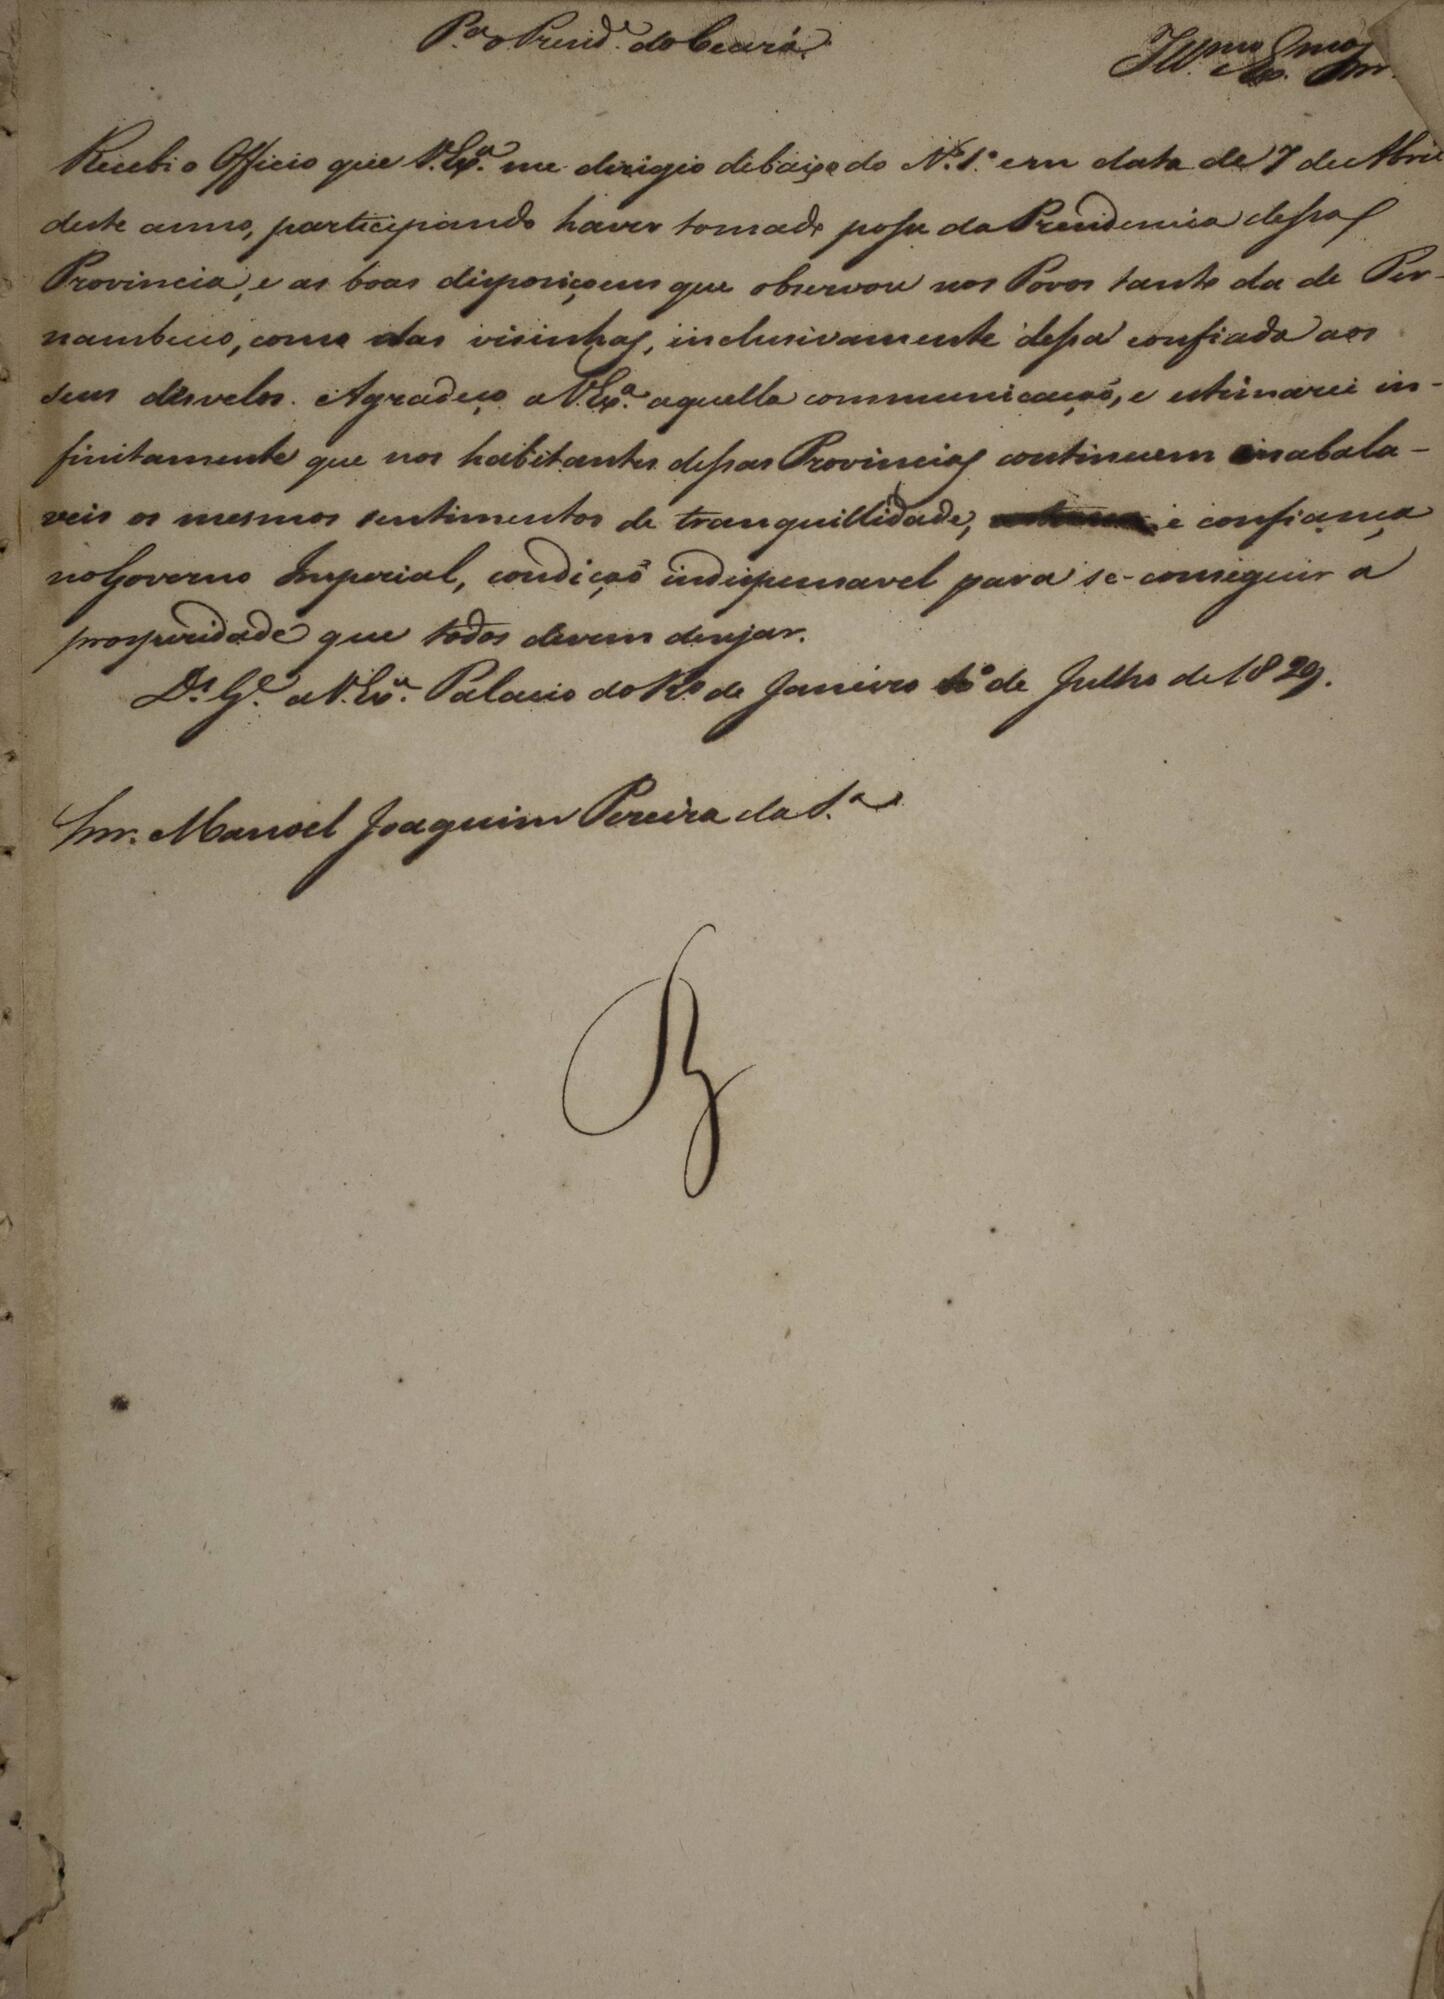 P.ª o Presid.e do Ceará.
Ill.mo Ex.mo Snr.
Recebi o Officio que V. Ex.ª me dirigio debaixo do N.º 1.º em data de 7 de Abril
deste anno, participando haver tomado posse da Presidencia dessa
Provincia, e as boas disposiçoens que observou nos Povos tanto da de Per-
nambuco, como das visinhas, inclusivamente dessa confiada aos
seus disvelos. Agradeço a V. Ex.ª aquella communicação, e estimarei in-
finitamente que nos habitantes dessas Provincias continuem inabala-
veis os mesmos sentimentos de tranquillidade, e confiança
no Governo Imperial, condição indispensavel para se-conseguir a
prosperidade que todos devem desejar.
D.s G.e a V. Ex.ª Palacio do R.º de Janeiro de Julho de 1829.
Snr. Manoel Joaquim Pereira da S.ª